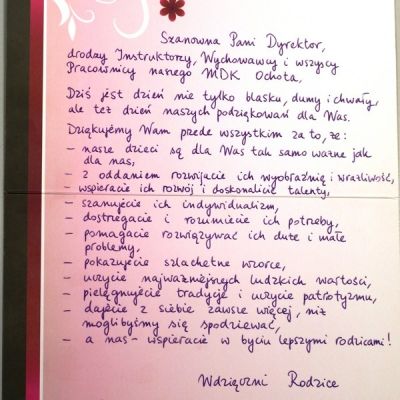 Szanowna Pani Dyrektor,
drodzy Instruktorzy, Wychowawcy i wszyscy
Pracownicy naszego MDK Ochota,
Dziś jest dzień nie tylko blasku, dumy i chwały,
ale też dzień naszych podziękowań dla Was.
Dziękujemy Wam przede wszystkim za to, że:
– nasze dzieci są dla Was tak samo ważne jak
dla nas,
– z oddaniem rozwijacie ich wyobraźnię i wrażliwość,
– wspieracie ich rozwój i doskonalicie talenty,
– szanujecie ich indywidualizm,
– dostrzegacie i rozumiecie ich potrzeby,
– pomagacie rozwiązywać ich duże i małe
problemy,
– pokazujecie szlachetne wzorce,
– uczycie najważniejszych ludzkich wartości,
– pielęgnujecie tradycje i uczycie patriotyzmu,
– dajecie z siebie zawsze więcej, niż
moglibyśmy się spodziewać,
– a nas – wspieracie w byciu lepszymi rodzicami!
Wdzięczni Rodzice